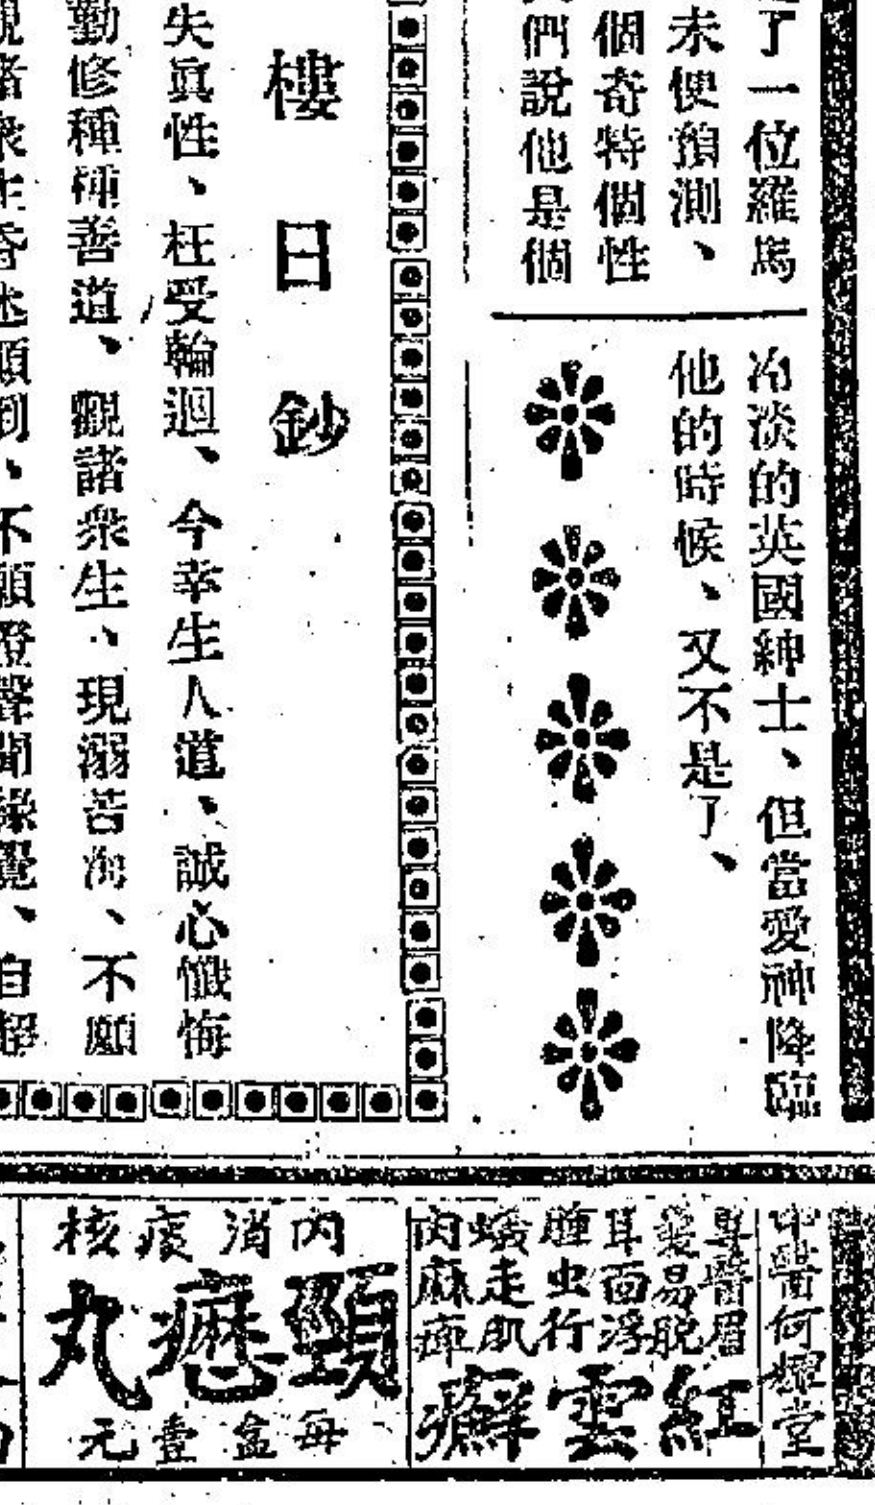 了一位羅馬
未便預測、
個奇特個性
們說他是個
冷淡的英國紳士、但當愛神降臨
他的時候、又不是了、
樓日鈔
失眞性、枉受輪迴、今幸生人道、誠心懺悔
勤修種種善道、觀諸衆生、現溺苦海、不願
觀諸衆生昏迷顚倒、不願證聲聞緣覺、自超
中醫何耀堂
專醫眉
髮易脫
耳面浮
腫虫行
蟻走肌
肉麻痺
紅雲癬
內消痰核
頸癧丸
每盒壹元